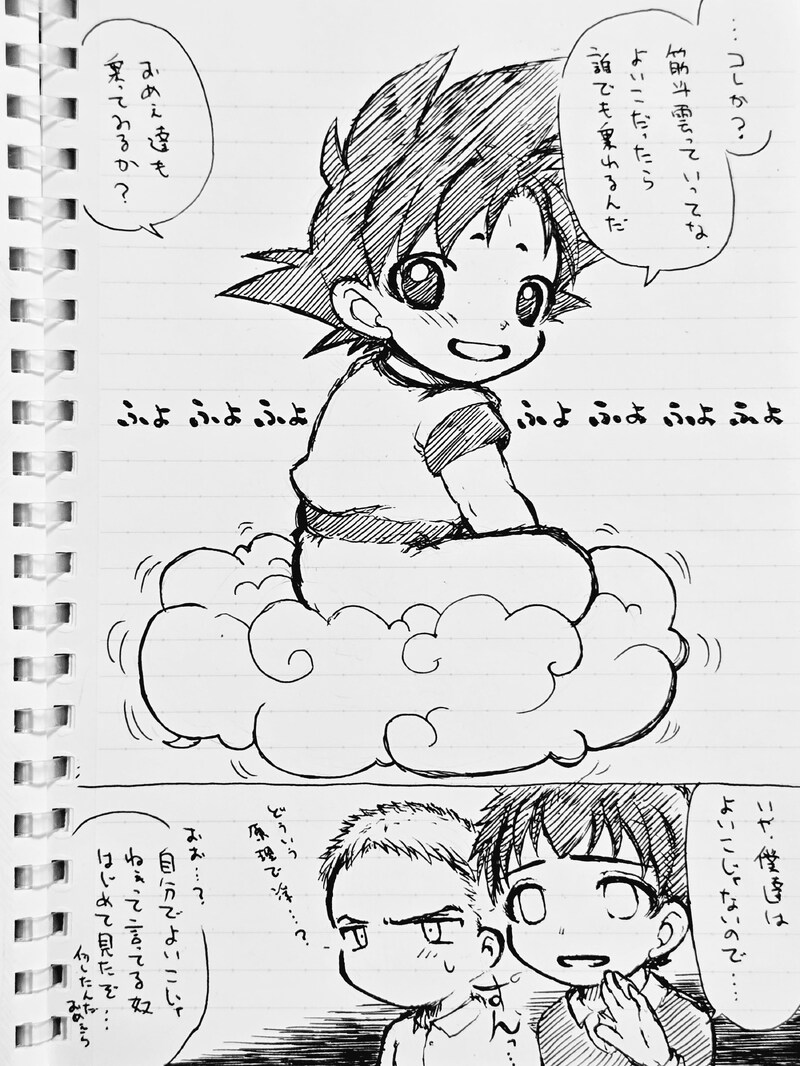 …コレか？
筋斗雲っていってな、
よいこだったら
誰でも乗れるんだ
おめぇ達も
乗ってみるか？
ふよ ふよ ふよ
ふよ ふよ ふよ ふよ
いや、僕達は
よいこじゃないので…
ぽんっ…
どういう
原理で浮…？
おお…？
自分でよいこじゃ
ねぇって言ってる奴
はじめて見たぞ…
何したんだ
おめぇら